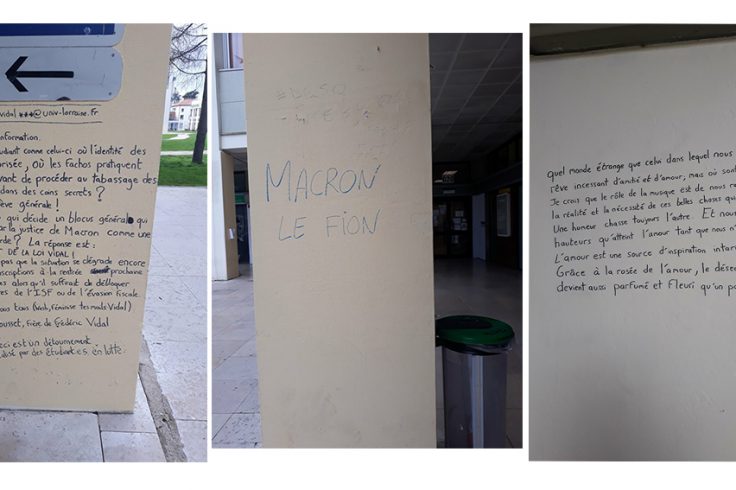 vidal ***@univ-lorraine.fr
formation.
udiant comme celui-ci où l'identité des
orisée, où les fachos pratiquent
vant de procéder au tabassage des
dans des coins secrets ?
ève générale !
qui décide un blocus général qui
la justice de Macron comme une
rde ? La réponse est :
T DE LA LOI VIDAL !
pas que la situation se dégrade encore
nscriptions à la rentrée prochaine
es alors qu'il suffirait de débloquer
res de l'ISF ou de l'évasion fiscale.
ous tous
ousset, fière de Frédéric Vidal
eci est un détournement
alisé par des étudiant.e.s en lutte.
MACRON
LE FION
Quel monde étrange que celui dans lequel nous
rêve incessant d'amitié et d'amour, mais où sont
Je crois que le rôle de la musique est de nous
la réalité et la nécessité de ces belles choses qu
Une honneur chasse toujours l'autre. Et nous
hauteurs qu'atteint l'amour tant que nous n'
L'amour est une source d'inspiration intar
Grâce à la rosée de l'amour, le dése
devient aussi parfumé et fleuri qu'un